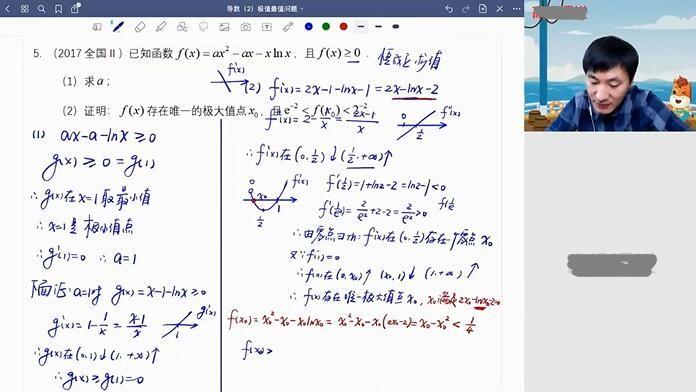 导数（2）极值最值问题
5.（2017 全国 II）已知函数 f(x)=ax²-ax-x ln x，且 f(x)≥0．恒成立
（1）求 a；
（2）证明：f(x) 存在唯一的极大值点 x₀，且 e⁻²<f(x₀)<2⁻²
(1) ax-a-lnx≥0
g(x)≥0=g(1)
∴g(x)在x=1取最小值
∴x=1是极小值点
∴g'(1)=0 ∴a=1
下面证：a=1时 g(x)=x-1-lnx≥0
g'(x)=1-1/x=(x-1)/x
g'(x)
1
∴g(x)在(0,1)↓(1,+∞)↑
∴g(x)≥g(1)=0
f'(x)
(2) f'(x)=2x-1-lnx-1=2x-lnx-2
f''(x)=2-1/x=(2x-1)/x
f''(x)
0
1/2
∴f'(x)在(0,1/2)↓(1/2,+∞)↑
f'(x)
0 x₀ 1
1/2
f'(1/2)=1+ln2-2=ln2-1<0
f'(1/e²)=2/e²+2-2=2/e²>0
∴由零点∃th：f'(x)在(0,1/2)存在一零点 x₀
又∵f'(1)=0
∴f(x)在(0,x₀)↑(x₀,1)↓(1,+∞)↑
∴f(x)存在唯一极大值点x₀，x₀满足2x₀-lnx₀-2=0
f(x₀)=x₀²-x₀-x₀lnx₀=x₀²-x₀-x₀(2x₀-2)=x₀-x₀²<1/4
f(x₀)>